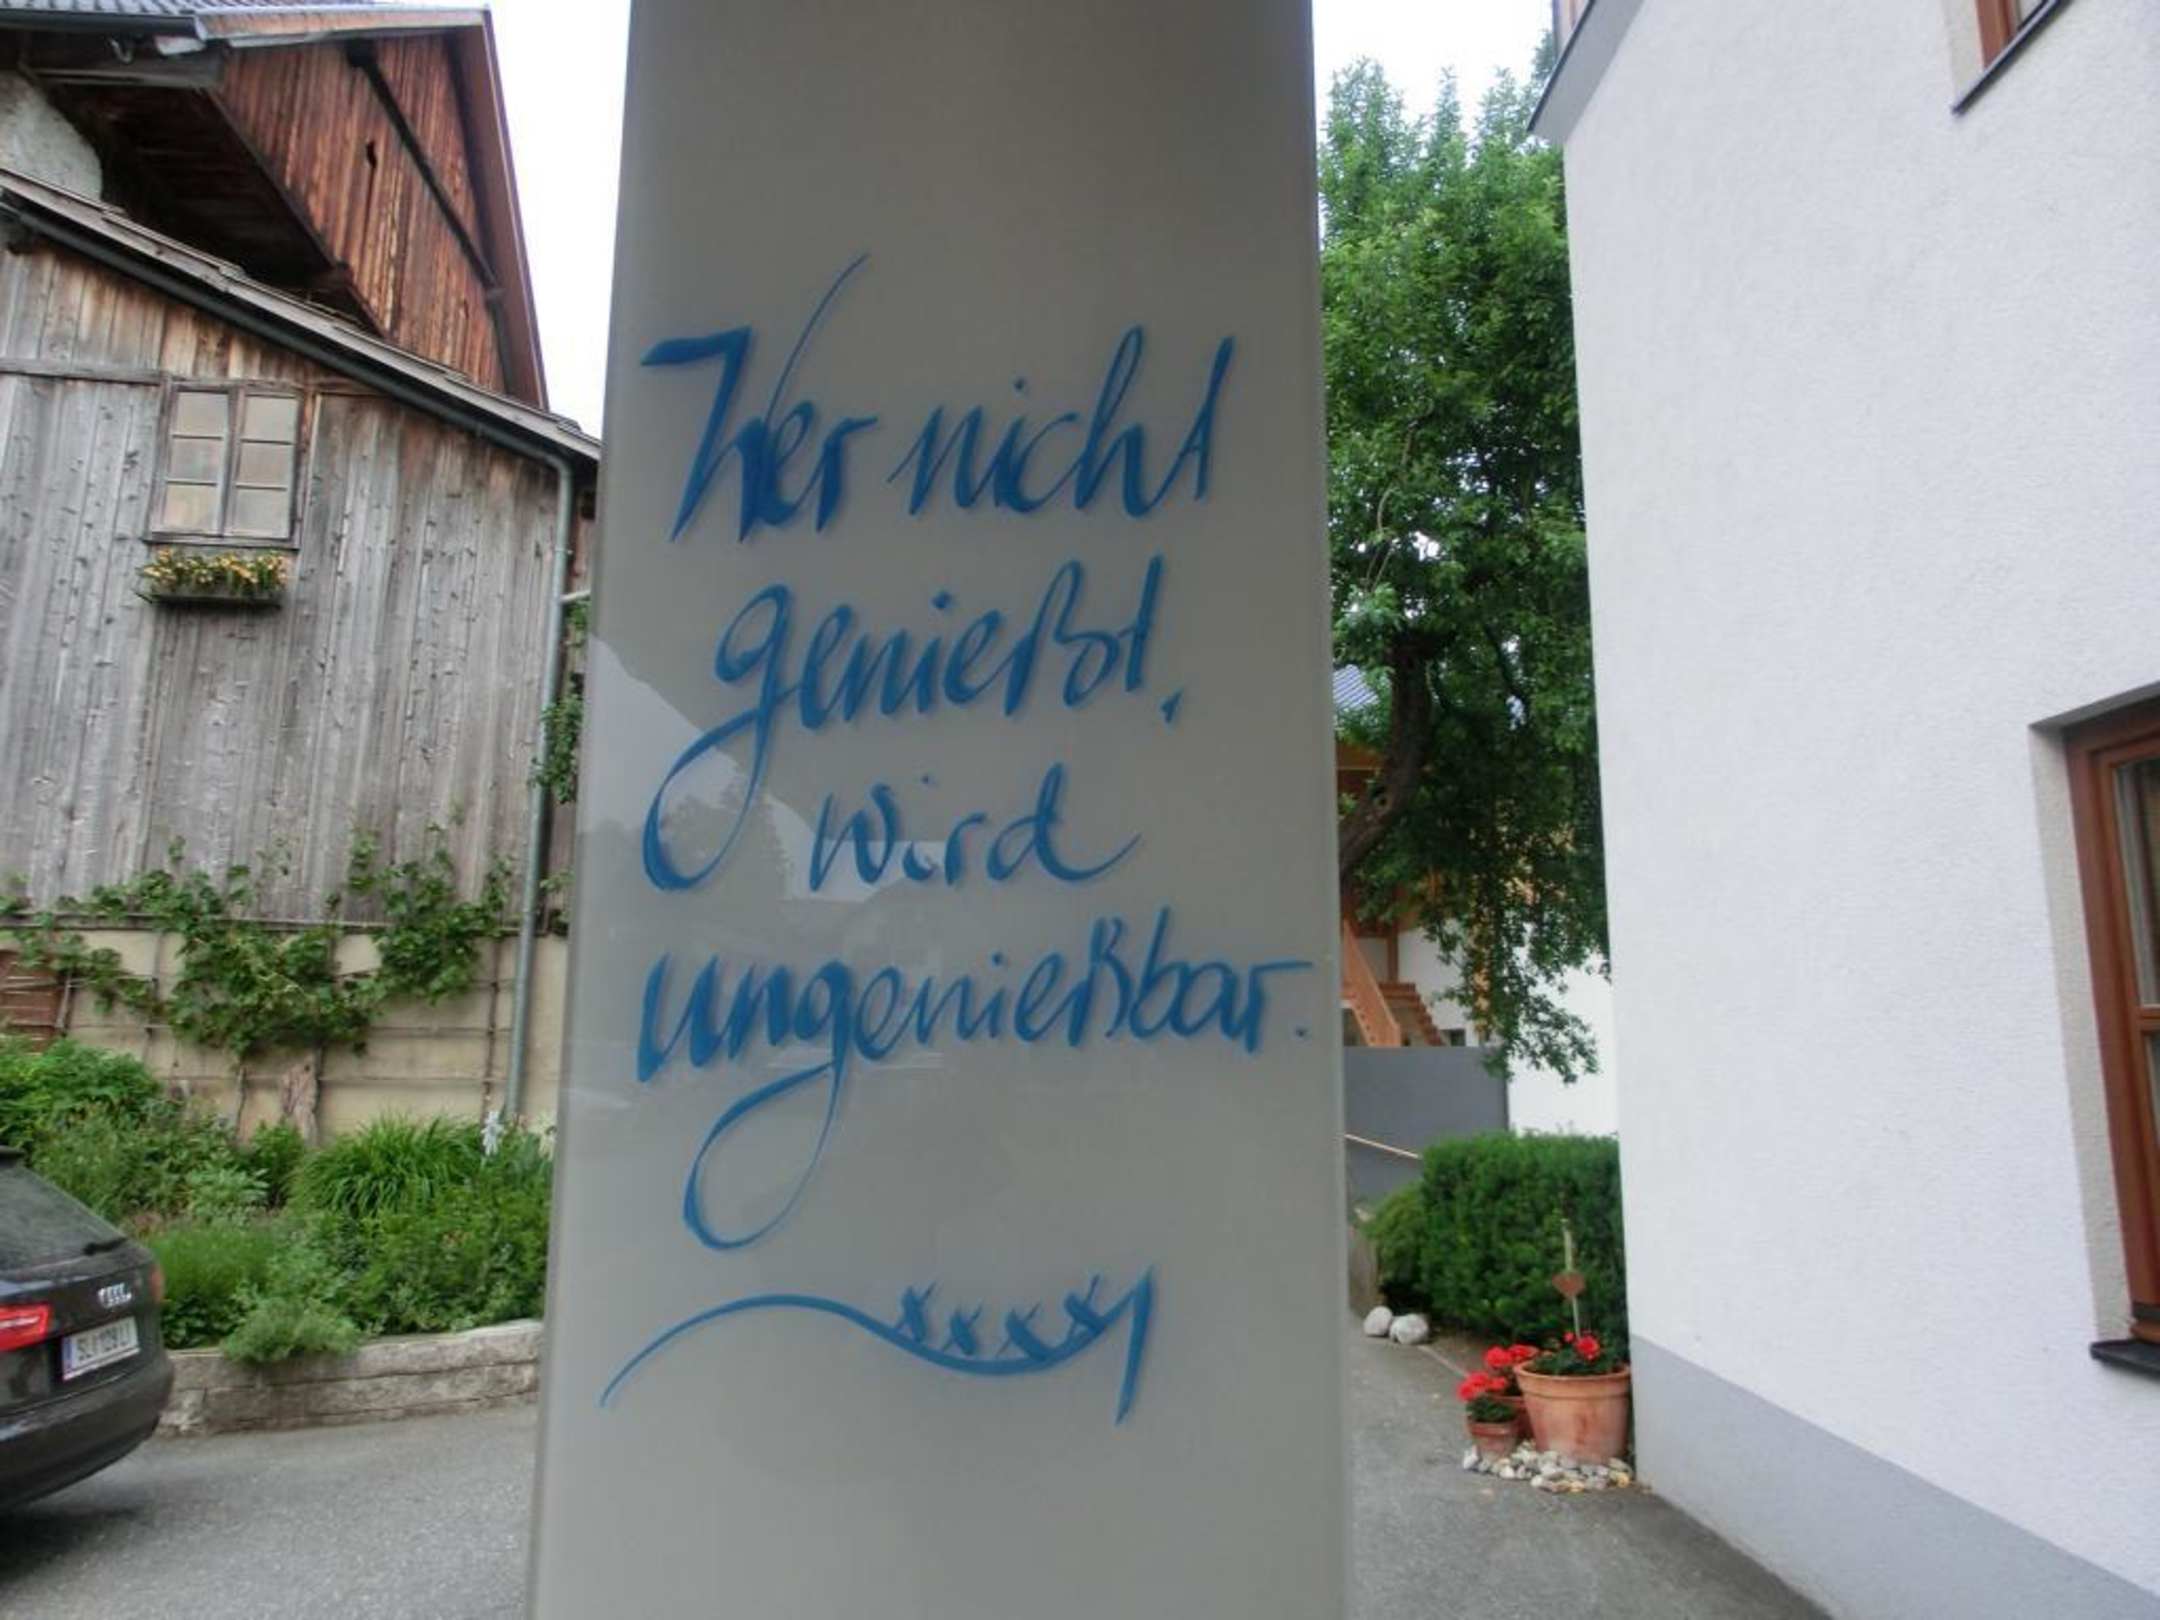 Wer nicht
genießt,
wird
ungenießbar.